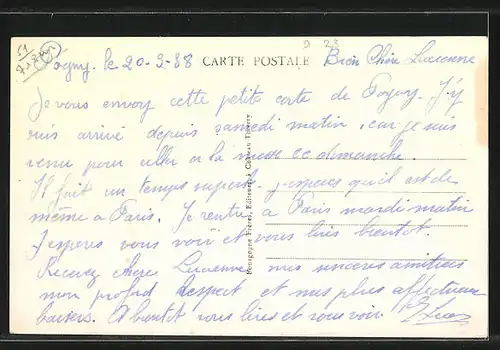 51
Pogny. le 20-3-38 CARTE POSTALE Bien Chère Lucienne
Je vous envoy cette petite carte de Pogny. J'y
suis arrivé depuis samedi matin, car je suis
venu pour aller a la messe ce dimanche.
Il fait un temps superbe. j'esperes qu'il est de
même a Paris. Je rentre a Paris mardi matin
J'esperes vous voir et vous lires bientot.
Recevez chere Lucienne mes sinceres amitiees
mon profond respect et mes plus affectueux
baisers. A bientot vous lires et vous voir.
Bourgogne Frères, Editeurs à Château-Thierry